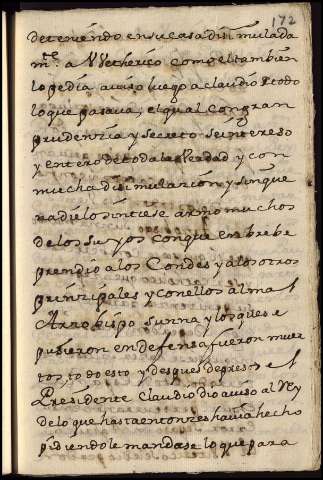 172
deteniendo en su casa disimulada
mte. a Wetherico como el tambien
lo pedia aviso luego a claudio de todo
lo que pasava, el qual con gran
prudenzia y secreto se intereso
y entero de toda la Verdad y con
mucha disimulazion y sin que
nadie lo sintiese armo muchos
de los suyos con que en brebe
prendio a los Condes y a los otros
prinzipales y con ellos al mal
Arzobispo sunna y los que se
pusieron en defensa fueron muer
tos, todo esto y despues de preso el
Presidente Claudio dio aviso al Rey
de lo que hasta entonzes havia hecho
pidiendole mandase lo que para